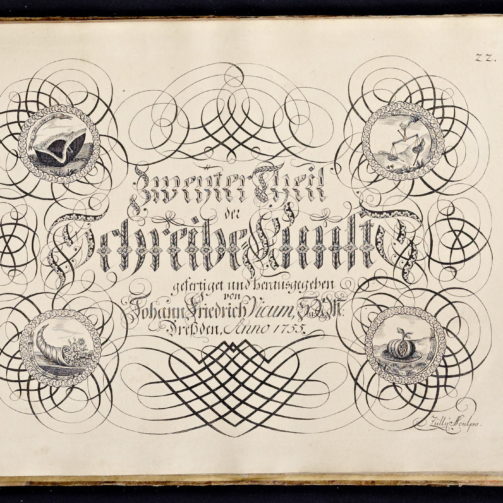 22.
Zweyter Theil
der
Schreibe Kunst
gefertiget und herausgegeben
von
Johann Friedrich Vicum,
Dreßden, Anno 1755.
Sculps.